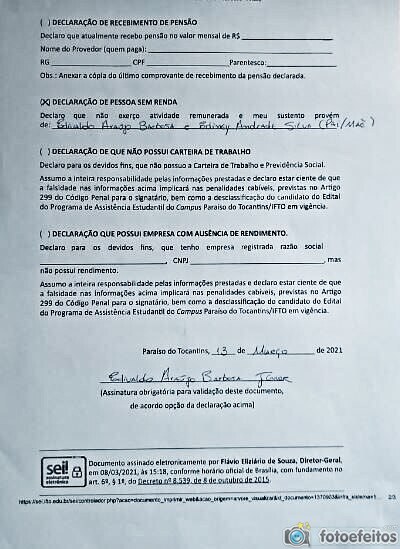 ( ) DECLARAÇÃO DE RECEBIMENTO DE PENSÃO
Declaro que atualmente recebo pensão no valor mensal de R$
Nome do Provedor (quem paga):
RG CPF Parentesco:
Obs.: Anexar a cópia do último comprovante de recebimento da pensão declarada.
(X) DECLARAÇÃO DE PESSOA SEM RENDA
Declaro que não exerço atividade remunerada e meu sustento provém
de: Edivaldo Araújo Barbosa e Andrade Silva (Pai/Mãe)
( ) DECLARAÇÃO DE QUE NÃO POSSUI CARTEIRA DE TRABALHO
Declaro para os devidos fins, que não possuo a Carteira de Trabalho e Previdência Social.
Assumo a inteira responsabilidade pelas informações prestadas e declaro estar ciente de que
a falsidade nas informações acima implicará nas penalidades cabíveis, previstas no Artigo
299 do Código Penal para o signatário, bem como a desclassificação do candidato do Edital
do Programa de Assistência Estudantil do Campus Paraíso do Tocantins/IFTO em vigência.
( ) DECLARAÇÃO QUE POSSUI EMPRESA COM AUSÊNCIA DE RENDIMENTO.
Declaro para os devidos fins, que tenho empresa registrada razão social
, CNPJ , mas
não possui rendimento.
Assumo a inteira responsabilidade pelas informações prestadas e declaro estar ciente de que
a falsidade nas informações acima implicará nas penalidades cabíveis, previstas no Artigo
299 do Código Penal para o signatário, bem como a desclassificação do candidato do Edital
do Programa de Assistência Estudantil do Campus Paraíso do Tocantins/IFTO em vigência.
Paraíso do Tocantins, 13 de Março de 2021
Edivaldo Araújo Barbosa Júnior
(Assinatura obrigatória para validação deste documento,
de acordo opção da declaração acima)
sei!
assinatura
eletrônica
Documento assinado eletronicamente por Flávio Eliziário de Souza, Diretor-Geral,
em 08/03/2021, às 15:18, conforme horário oficial de Brasília, com fundamento no
art. 6º, § 1º, do Decreto nº 8.539, de 8 de outubro de 2015.
2/3
fotoefeitos